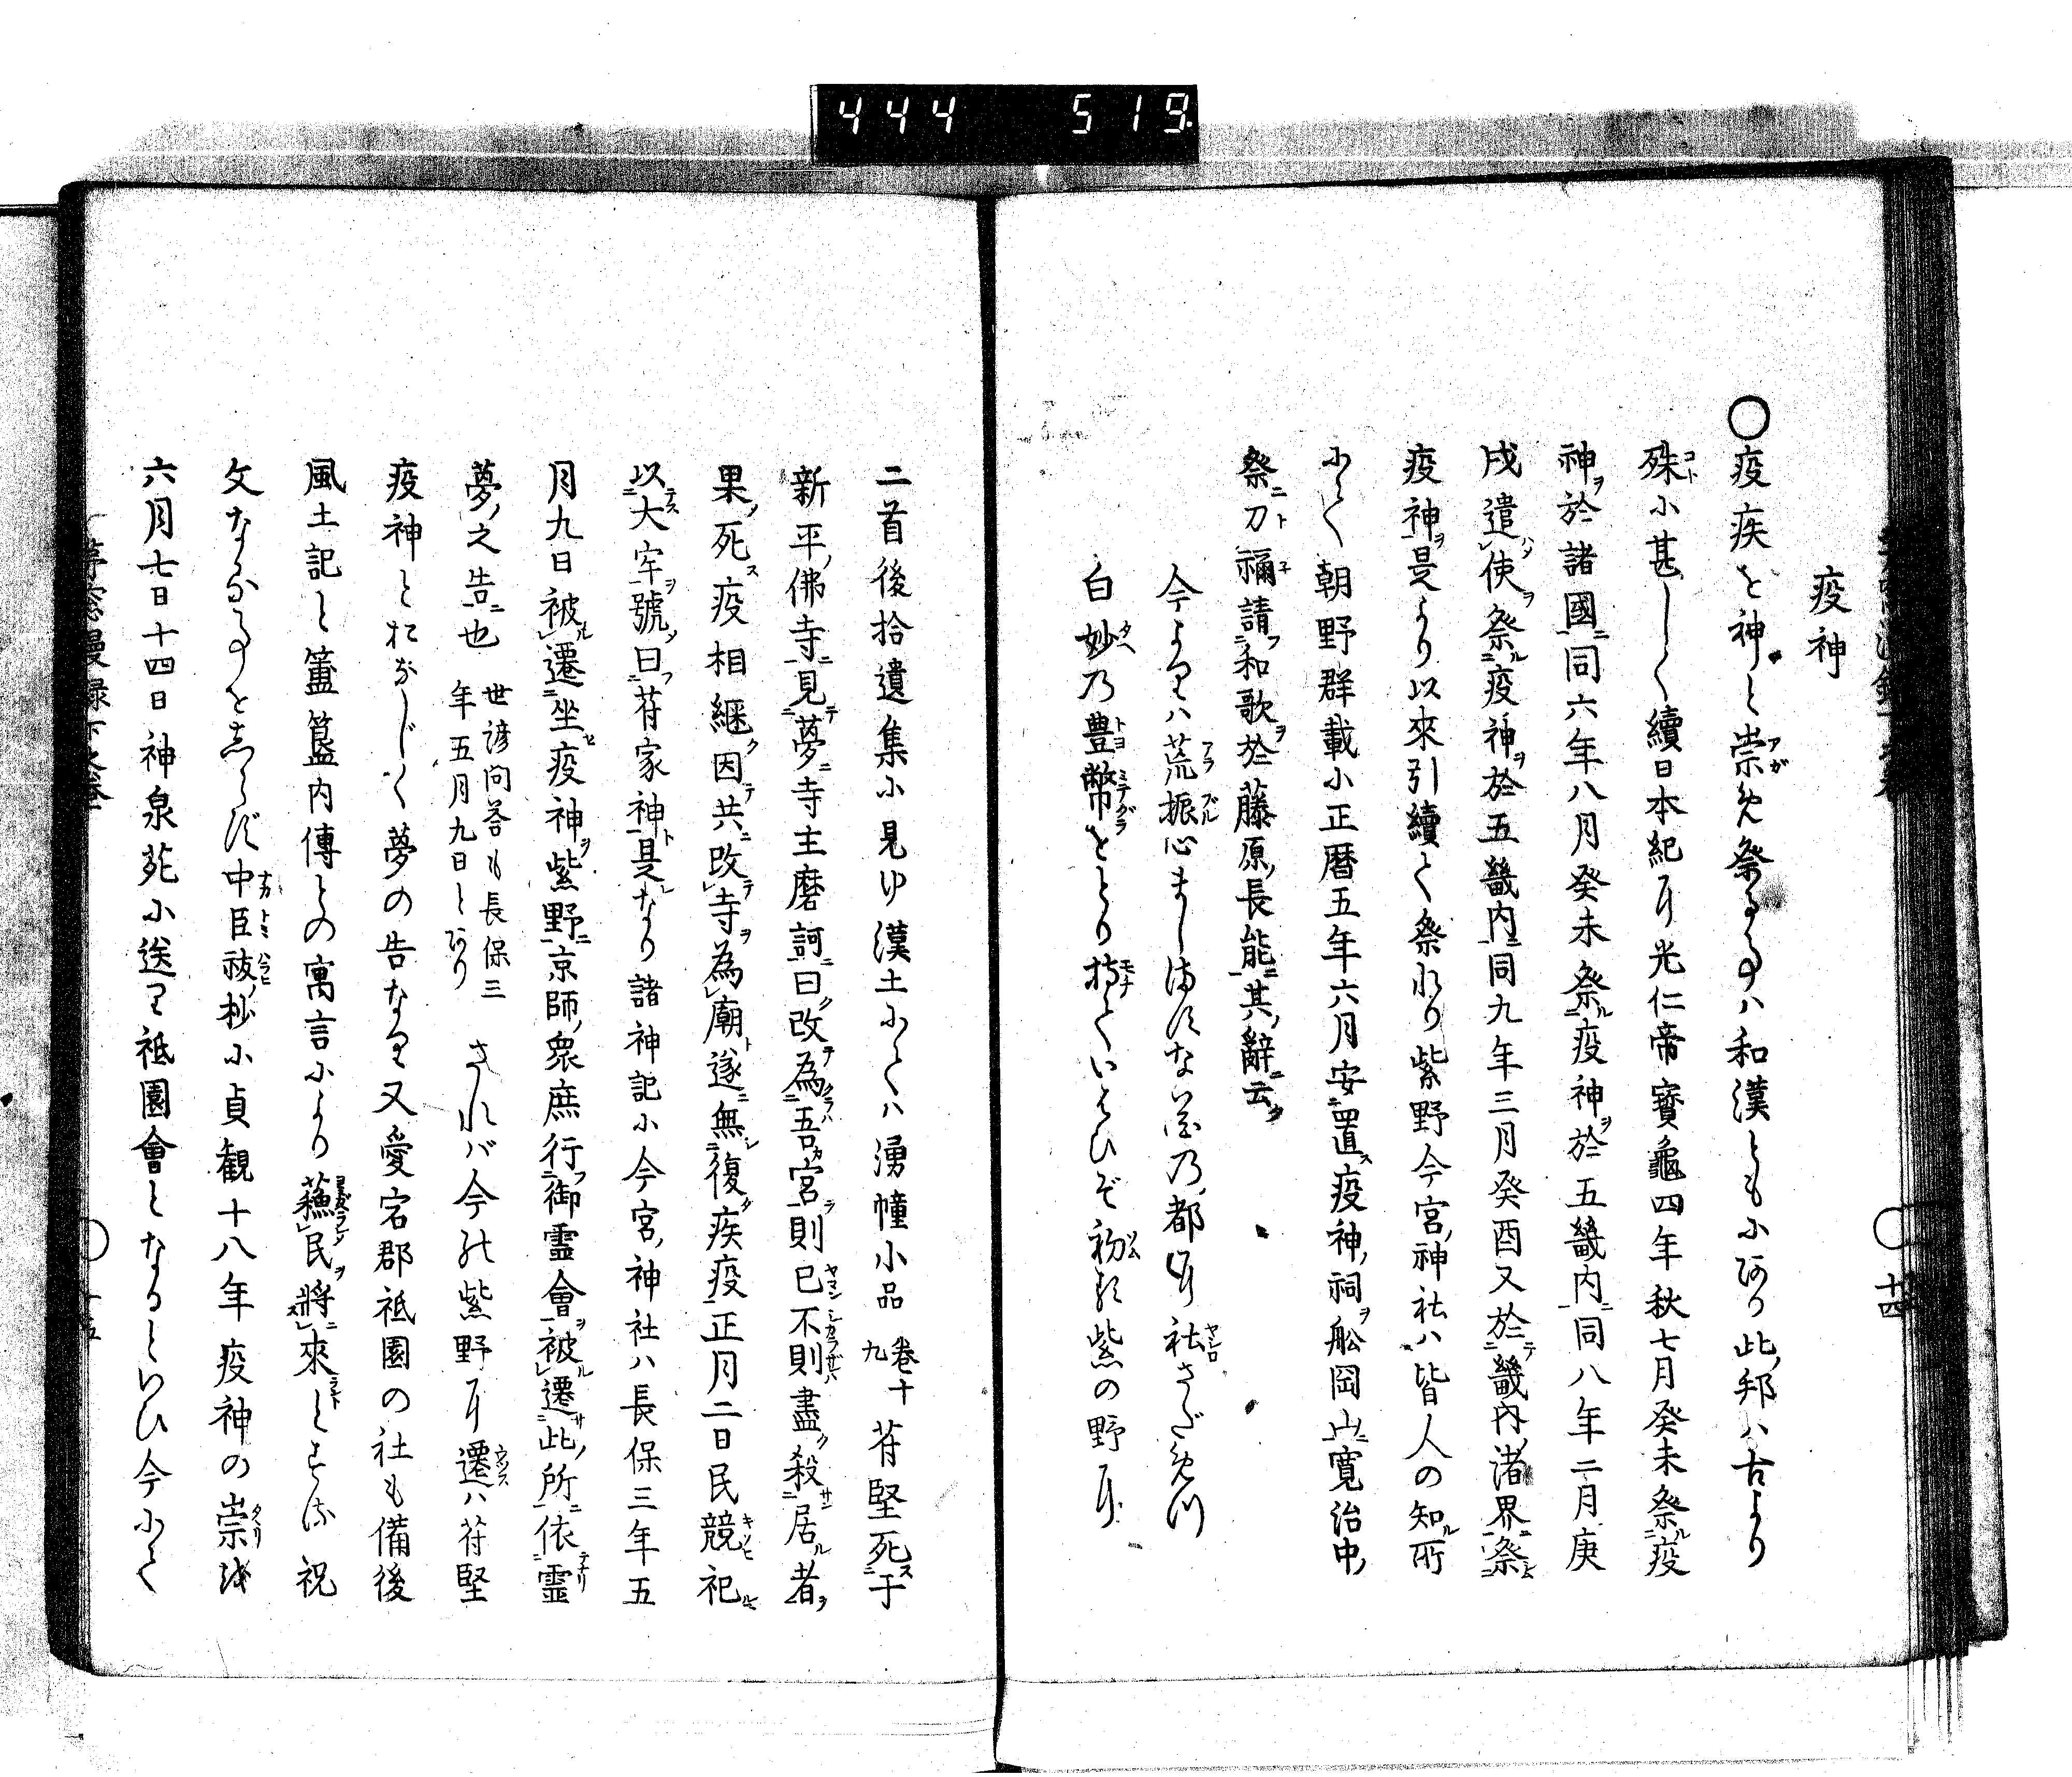 444 519
疫神
○疫疾を神と崇め祭る事ハ和漢ともにあり此邦ハ古より
殊に甚しく續日本紀に光仁帝寶龜四年秋七月癸未祭疫
神於諸國同六年八月癸未祭疫神於五畿内同八年二月庚
戌遣使祭疫神於五畿内同九年三月癸酉又於畿内諸界祭
疫神是より以來引續て祭れり紫野今宮神社ハ皆人の知所
にて朝野群載に正暦五年六月安置疫神祠舩岡山寛治中
祭刀禰請和歌於藤原長能其辭云
今よりハ荒振心ましますな花の都に社さだめつ
白妙乃豊幣をとり持ていはひぞ初る紫の野に
二首後拾遺集に見ゆ漢土にてハ湧幢小品
卷十九
苻堅死于
新平佛寺見夢寺主磨訶曰改為吾宮則已不則盡殺居者
果死疫相継因共改寺為廟遂無復疾疫正月二日民競祀
以大牢號曰苻家神是なり諸神記に今宮神社ハ長保三年五
月九日被遷坐疫神紫野京師衆庶行御霊會被遷此所依霊
夢之告也
世諺問答も長保三
年五月九日とあり
されバ今の紫野に遷ハ苻堅
疫神とおなじく夢の告なり又愛宕郡祗園の社も備後
風土記と簠簋内傳との寓言により蘓民將來とする祝
文なる事をしらず中臣祓抄に貞観十八年疫神の崇
六月七日十四日神泉苑に送り祗園會となるといひ今にて
十四